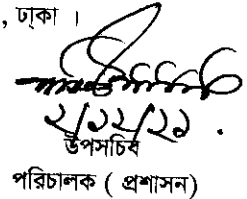 , ঢাকা ।
২/১২/২১ .
উপসচিব
পরিচালক ( প্রশাসন)